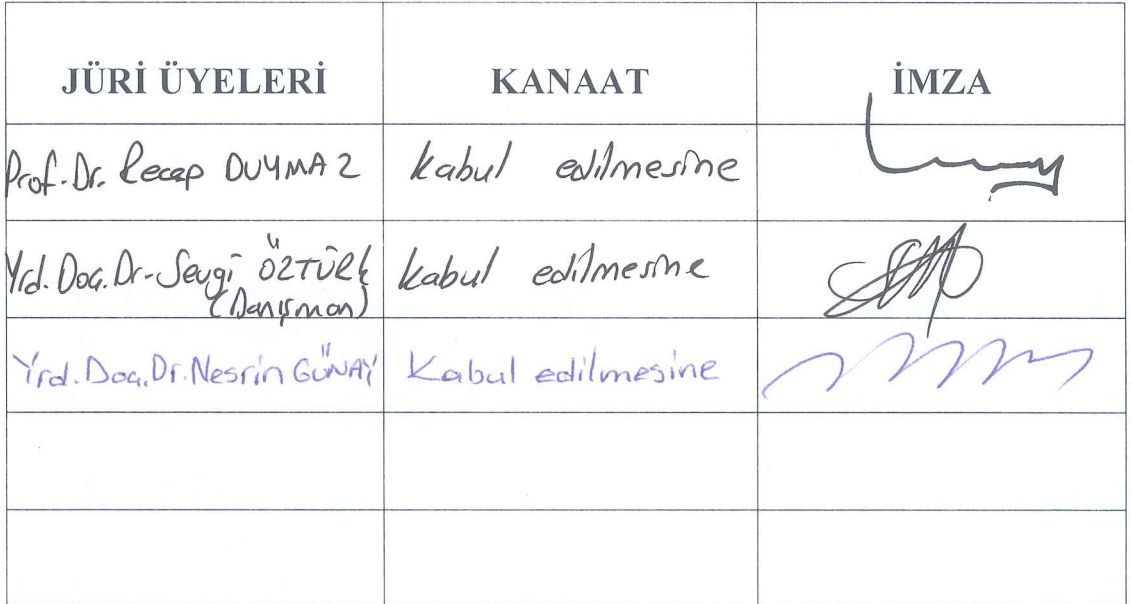 JÜRİ ÜYELERİ KANAAT İMZA
Prof. Dr. Recep DUYMAZ kabul edilmesine
Yrd. Doç. Dr. Sevgi ÖZTÜRK kabul edilmesine
(Danışman)
Yrd. Doç. Dr. Nesrin GÜNAY Kabul edilmesine